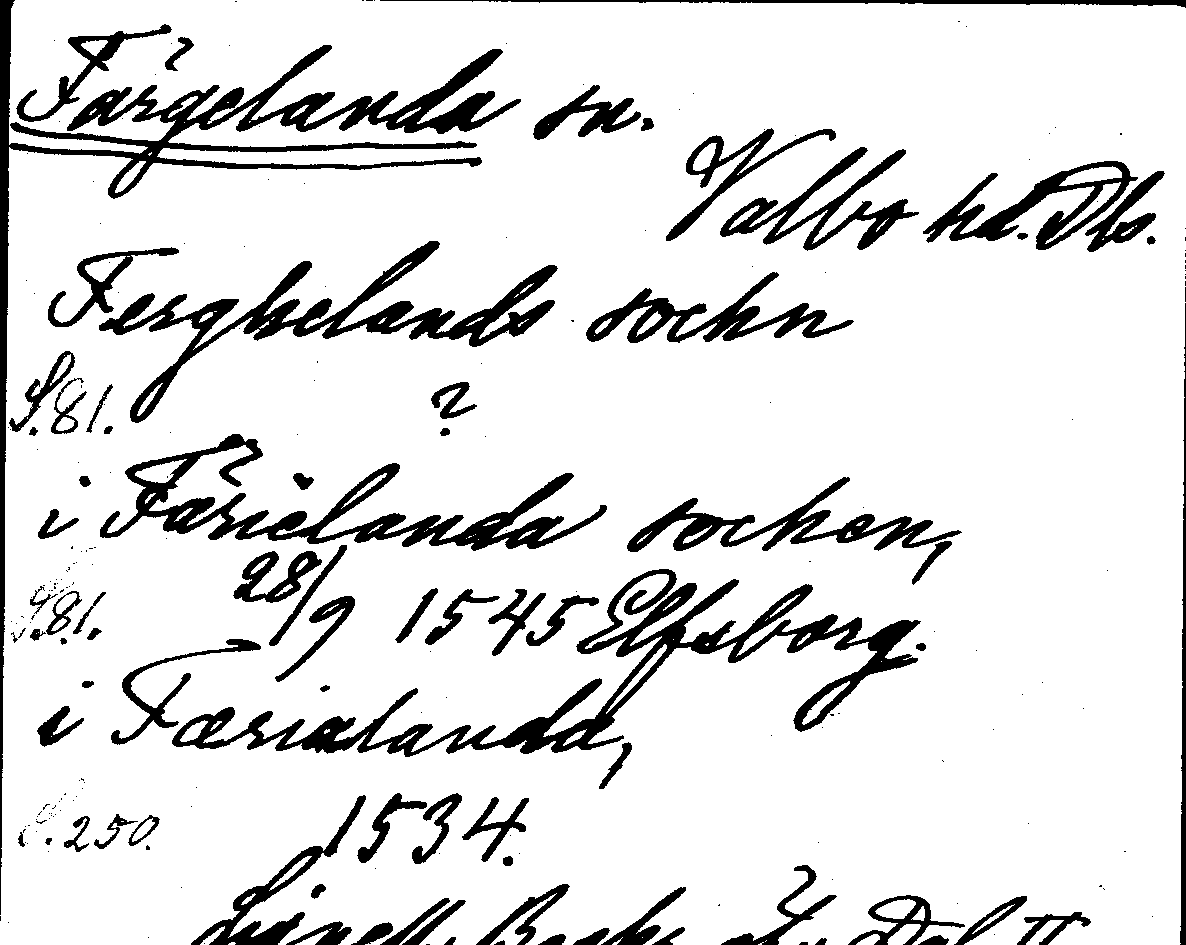 Färgelanda sn.
Valbo hd. Dls.
Ferghelands sochn
S. 81. ?
i Färielanda sochen,
S. 81. 28/9 1545 Elfsborg.
i Færialanda,
S. 250. 1534.
Lignell, Beskr. öfv. Dal II